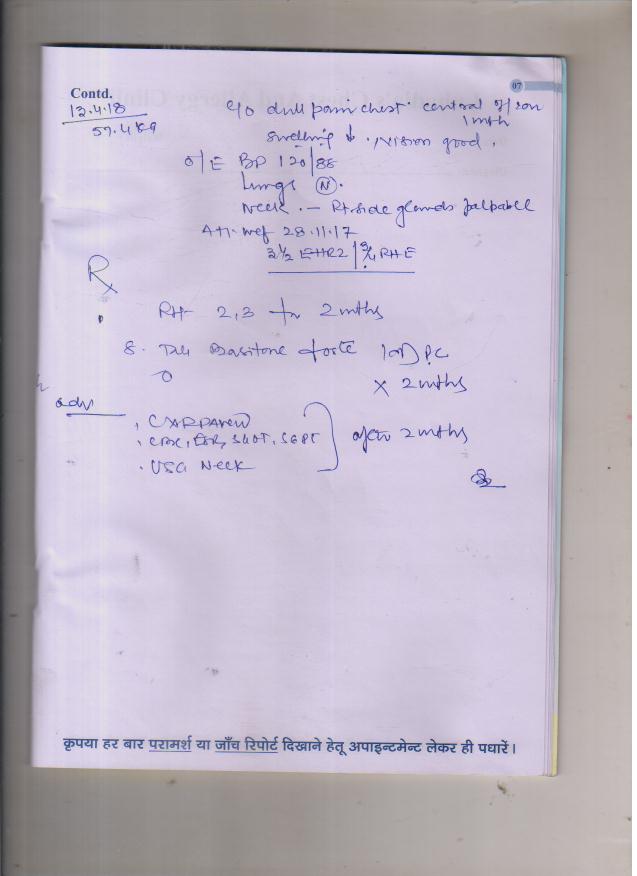 07
Contd.
12.4.18
57.4 kg
c/o dull pain chest central off/on
1 mth
swelling ↓ . Vision good .
O/E BP 120/88
Lungs (N).
Neck . – Rt side glands palpable
ATT wef 28.11.17
RHE
Rx
2,3 2 mths
8. Tab Basitone forte 1 OD PC
x 2 mths
adv
. CXR PA view
. CBC, ESR, SGOT, SGPT
after 2 mths
. USG Neck
कृपया हर बार परामर्श या जाँच रिपोर्ट दिखाने हेतू अपाइन्टमेन्ट लेकर ही पधारें।